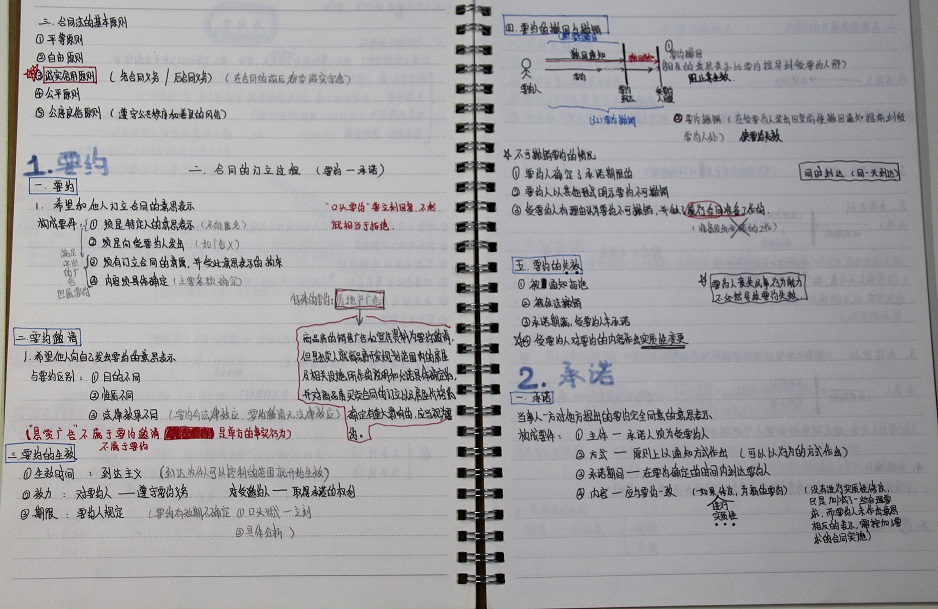 三. 合同法的基本原则
① 平等原则
② 自由原则
③ 诚实信用原则 (先合同义务 / 后合同义务) (在合同的前后都要诚实守信)
④ 公平原则
⑤ 公序良俗原则 (遵守公共秩序和善良的风俗)
1. 要约
二. 合同的订立过程 (要约 — 承诺)
一. 要约
1. 希望和他人订立合同的意思表示
"口头要约"要立刻回复, 不然
就相当于拒绝.
构成要件: ① 须是特定人的意思表示
② 须是向受要约人发出 (如广告X)
③ 须有订立合同的意愿, 并受此意思表示的约束
④ 内容须具体确定 (主要条款确定)
特殊的要约: 房地产广告
二. 要约邀请
1. 希望他人向自己发出要约的意思表示
与要约区别: ① 目的不同
② 性质不同
③ 法律效果不同 (要约有法律效应, 要约邀请无法律效应)
商品房的销售广告和宣传资料为要约邀请,
但是出卖人就商品房开发规划范围内的房屋
及相关设施所作的说明和允诺具体确定的,
并对商品房买卖合同的订立以及房屋价格的
确定有重大影响的, 应当视为要
约.
("悬赏广告"不属于要约邀请 是单方的事实行为)
不属于要约
三. 要约的生效
① 生效时间: 到达主义 (到达为别可以控制的范围就开始生效)
② 效力: 对要约人 — 遵守要约义务 对受邀约人 — 取得承诺的权利
③ 期限: 要约人规定 (要约有效期不确定 (1) 口头式 — 立刻
② 具体分析)
四. 要约的撤回与撤销
撤回通知
要约
要约人
① 要约撤回
阻止其生效.
(2) 要约撤销
使要约失效
不可撤销要约的情况
同时到达 (同一天到达)
① 要约人确定了承诺期限的
② 要约人以其他形式明示要约不可撤销
③ 受要约人有理由认为要约不可撤销, 并做了履行合同准备工作的.
五. 要约的失效
① 被通知拒绝
② 被依法撤销
③ 承诺期满, 受要约人未承诺
④ 受要约人对要约的内容作出实质性变更
要约人丧失民事行为能力
不必然导致要约失效
2. 承诺
一. 承诺
当事人一方对他方提出的要约完全同意的意思表示
构成要件: ① 主体 — 承诺人须为受要约人
② 方式 — 原则上以通知方式作出 (可以以行为的方式作出)
③ 承诺期间 — 在要约确定的时间内到达要约人
④ 内容 — 应与要约一致 (如果修改, 为新的要约)
进行
实质性
(没有进行实质性修改,
只是加减了一些合理要
求, 而要约人未作出意思
相反的表示, 需按加理
求的合同实施)